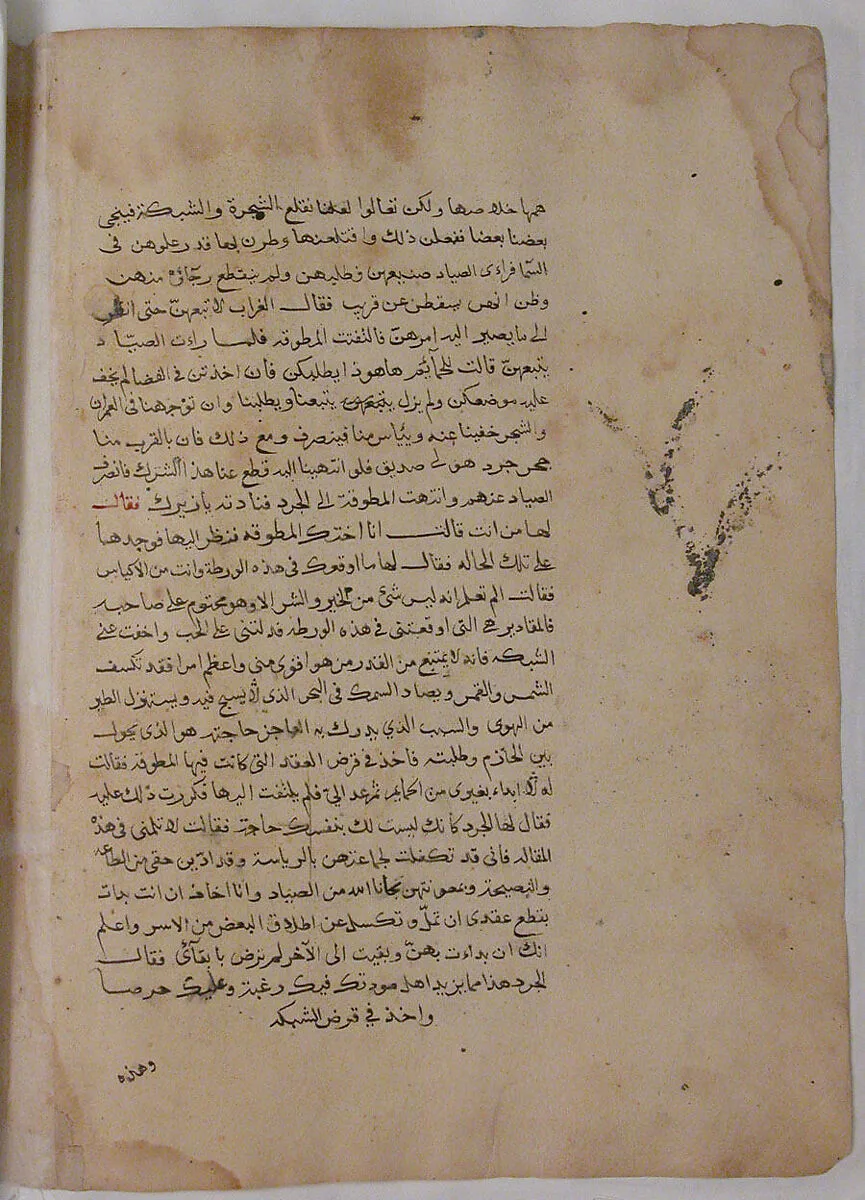 همها خلاصها ولكن تعالوا لعلنا نقلع الشجرة والشبكة فينجي
بعضنا بعضا ففعلن ذلك واقتلعنها وطرن بها قد علون في
السما فراءى الصياد صنيعهن وطلبهن ولم ينقطع رجاؤه منهن
وظن انهن يسقطن عن قريب فقال الغراب لاتبعهن حتى انظر
الى ما يصير اليه امرهن فالتفتت المطوقة فلما راءت الصياد
يتبعهن قالت للحمائم هاهوذا يطلبكن فان اخذتن في الفضا لم يخف
عليه موضعكن ولم يزل يتبعنا ويطلبنا وان توجهنا في العمران
والشجر خفينا عنه ويئاس منا فينصرف ومع ذلك فان بالقرب منا
جحر جرد هو لي صديق فلو انتهينا اليه قطع عنا هذا الشرك فانصرف
الصياد عنهم وانتهت المطوقة الى الجرد فنادته بازيرك فقال
لها من انت قالت انا اختك المطوقه فنظر اليها فوجدها
على تلك الحاله فقال لها ما اوقعك في هذه الورطة وانت من الاكياس
فقالت الم تعلم انه ليس شئ من الخير والشر الا وهو محتوم على صاحبه
فالمقادير هي التي اوقعتني في هذه الورطه قد لتنى على الحب واخفت عني
الشبكه فانه لا يمتنع من القدر من هو اقوى مني واعظم امرا فقد تكسف
الشمس والقمر ويصاد السمك في البحر الذي لا يسبح فيه ويستنزل الطير
من الهوى والسبب الذي يدرك به العاجز حاجته هو الذى يحول
بين الحازم وطلبته فاخذ في قرض العقد التي كانت فيها المطوقة فقالت
له ابداء بغيرى من الحمايم ثم عد الي فلم يلتفت اليها فكررت ذلك عليه
فقال لها الجرد كانك ليست لك بنفسك حاجة فقالت لا تلمنى في هذه
المقاله فاني قد تكفلت لجماعتهن بالرياسة وقد ادين حقى من الطاعه
والنصيحة وبمعونتهن نجانا الله من الصياد وانا اخاف ان انت بدات
بقطع عقدى ان تمل وتكسل عن اطلاق البعض من الاسر واعلم
انك ان بداءت بهن وبقيت الى الآخر لم ترض بابقآئ فقال
الجرد هذا مما يزيد اهل مودتك فيك رغبة وعليك حرصا
واخذ في قرض الشبكه
وهذه